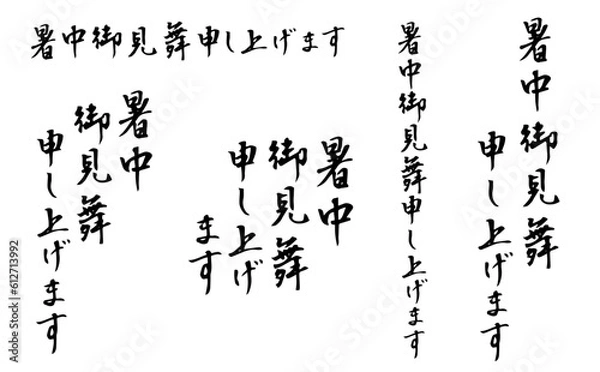 暑中御見舞申し上げます
暑中
御見舞
申し上げます
暑中
御見舞
申し上げ
ます
暑中御見舞申し上げます
暑中御見舞
申し上げます
Adobe Stock | #612713992
Adobe Stock